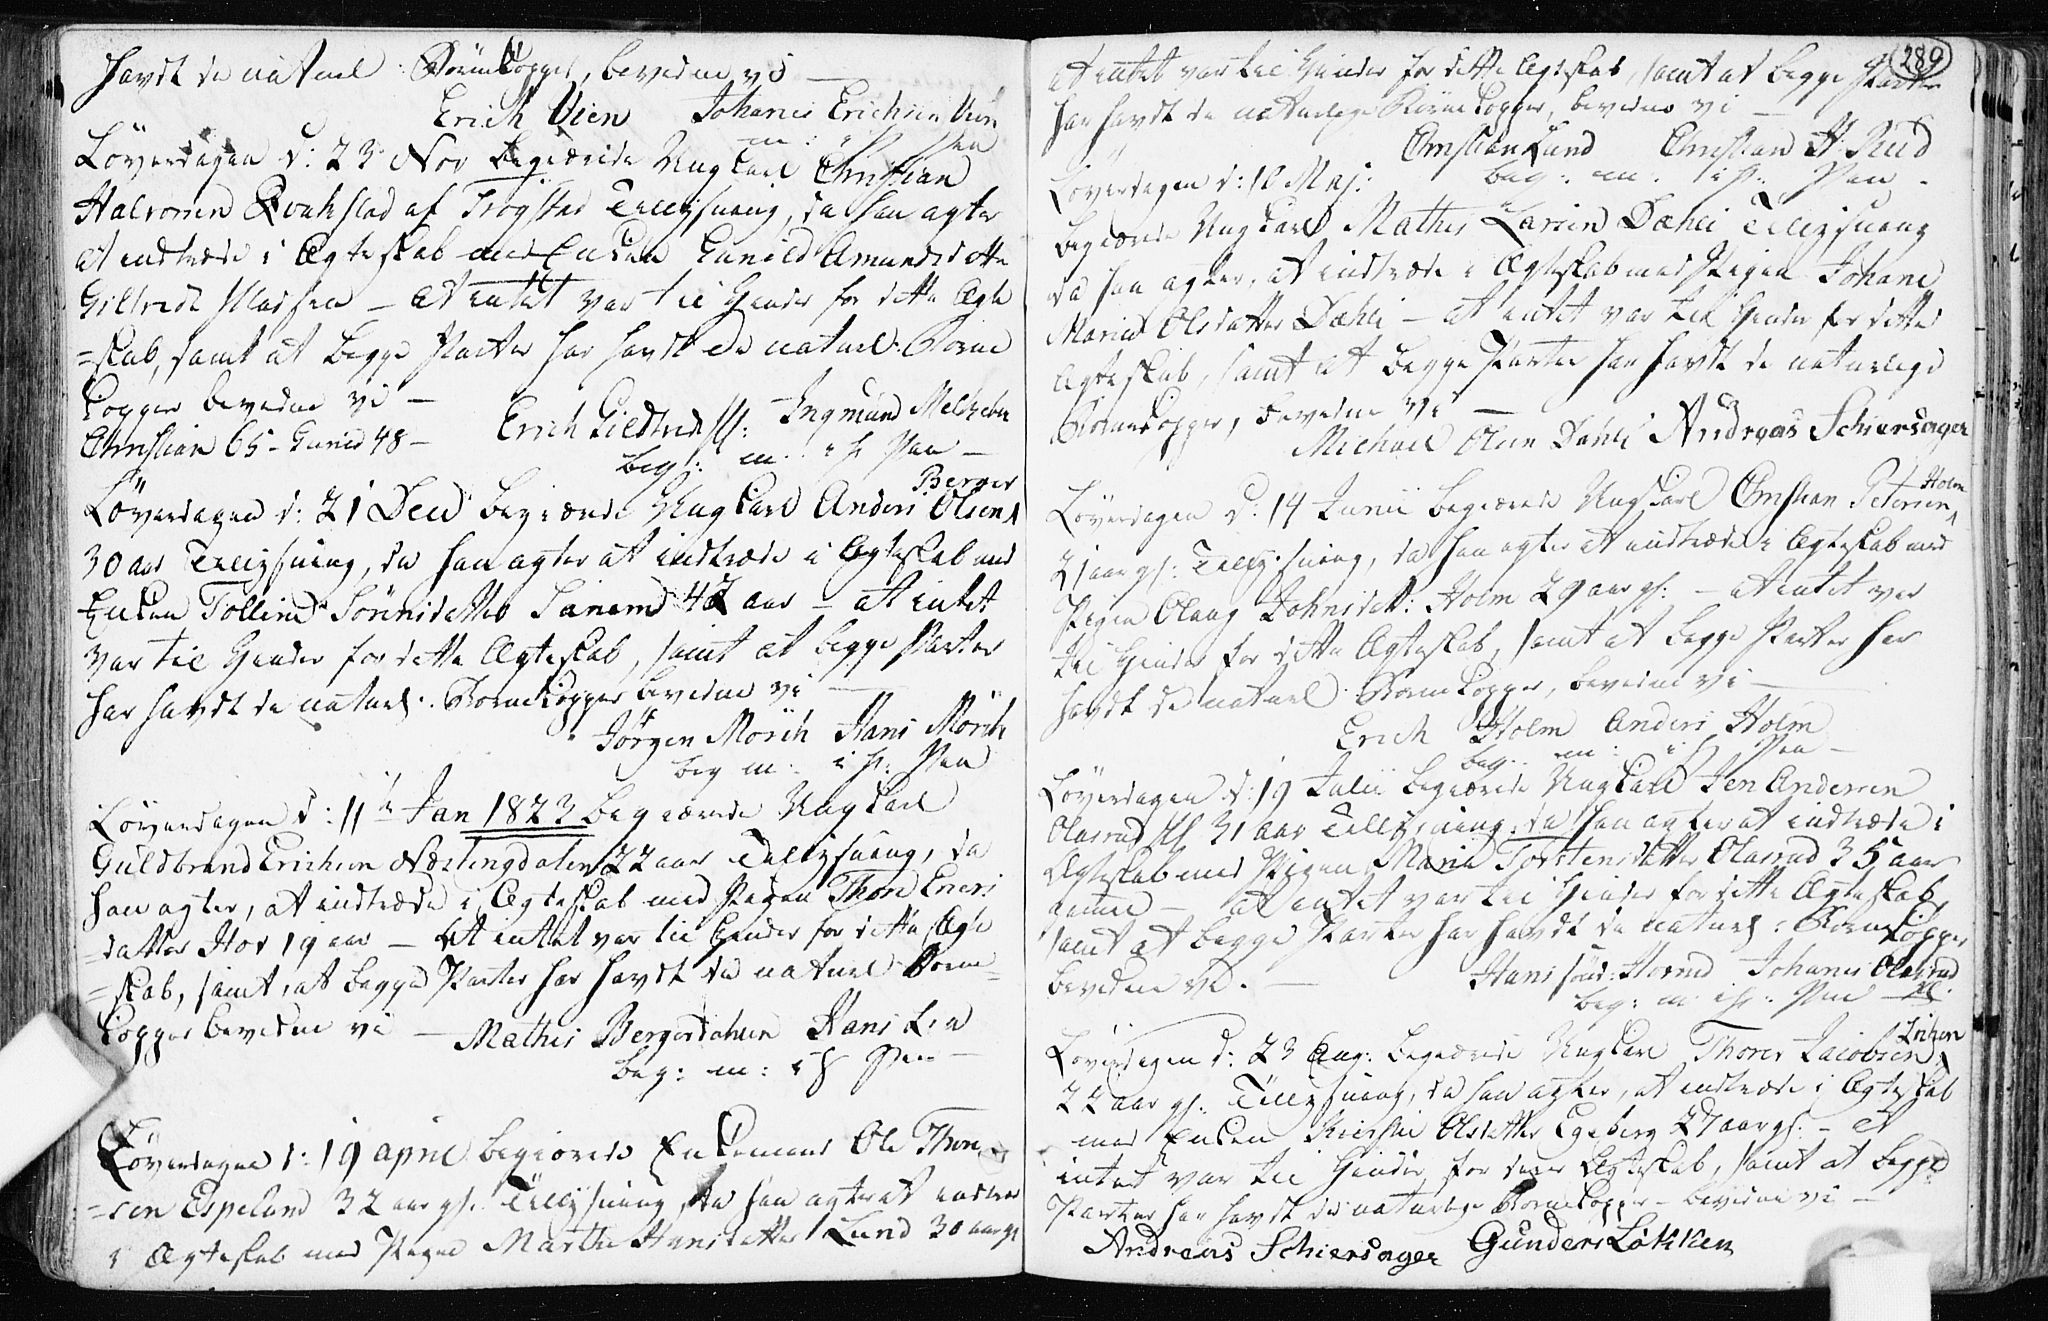 havdt de naturl: Børnekopper, bevidne vi —
Erich Vien Johanes Erichsen Vien
m: Pen
Løverdagen d: 23 Nov begiærede Ungkarl Christian
Halvorsen af Trøgstad Tillysning, da han agter
at indtræde i Ægteskab med Enken Gunild Amundsdatter
Gildtvedt Pladsen — at intet var til Hinder for dette Ægte
=skab, samt at begge Parter har havdt de naturl: Børne
kopper bevidne vi —
Christian 65 - Gunild 48 — Erich Gildtvedt Ingmund
beg: m: i h: Pen —
Løverdagen d: 21 Decb begiærede Ungkarl Anders Olsen Berger
30 aar Tillysning, da han agter at indtræde i Ægteskab med
Enken Tolline Sønnisdatter Sanem 42 aar — at intet
var til Hinder for dette Ægteskab, samt at begge Parter
har havdt de naturl: Børnekopper bevidne vi —
Jørgen Mörch Hans Mörch
beg m: i h: Pen
Løverdagen d: 11 Jan 1823 begiærede Ungkarl
Guldbrand Erichsen Næstingdalen 22 aar Tillysning, da
han agter, at indtræde i Ægteskab med Pigen Thore Eners
=datter Hov 19 aar — at intet var til Hinder for dette Ægte
=skab, samt, at begge Parter har havdt de naturl Børne=
kopper bevidne vi — Mathis Bergerdahlen Hans Lie
beg: m: i h Pen —
Løverdagen d: 19 april begiærede Enkemand Ole Thore
=sen Espelund 32 aar gl. Tillysning, da han agter at indtræde
i Ægteskab med Pigen Marthe Hansdatter Lund 30 aar gl
289
at intet var til Hinder for dette Ægteskab, samt at begge Parter
har havdt de naturlige Børnekopper, bevidne vi —
Christian Lund Christian H: Rud
beg: m: i h: Pen —
Løverdagen d: 10 Maj:
begiærede Ungkarl Mathis Larsen Dæhli Tillysning
da han agter, at indtræde i Ægteskab med Pigen Johane
Maria Olsdatter Dæhli — at intet var til Hinder for dette
Ægteskab, samt at begge Parter har havdt de naturlige
Børnekopper, bevidne vi —
Michael Olsen Dahli Andreas Schiersager
Løverdagen d: 14 Junii begiærede Ungkarl Christian Petersen Holm
21 aar gl: Tillysning, da han agter at indtræde i Ægteskab med
Pigen Olaug Johnsdat: Holm 29 aar gl: — at intet var
til Hinder for dette Ægteskab, samt at begge Parter har
havdt de naturl: Børnekopper, bevidne vi —
Erich Holm Anders Holm
beg: m: i h Pen —
Løverdagen d: 19 Julii begiærede Ungkarl Jen Andersen
Olasrud Pl 31 aar Tillysning, da han agter at indtræde i
Ægteskab med Pigen Maria Torstensdatter Olasrud 35 aar
gammel — at intet var til Hinder for dette Ægteskab,
samt at begge Parter har havdt de naturl: Børnekopper
bevidne vi. — Hans Johanes Olasrud
beg: m: i h: Pen — Pl.
Løverdagen d: 23 Aug: begiærede Ungkarl Thorer Jacobsen
22 aar gl: Tillysning, da han agter, at indtræde i Ægteskab
med Enken Kiersti Olsdatter Egeberg 27 aar gl: — at
intet var til Hinder for dette Ægteskab, samt at begge
Parter har havdt de naturlige Børnekopper — bevidne vi —
Andreas Schiersager Gunder Løkken